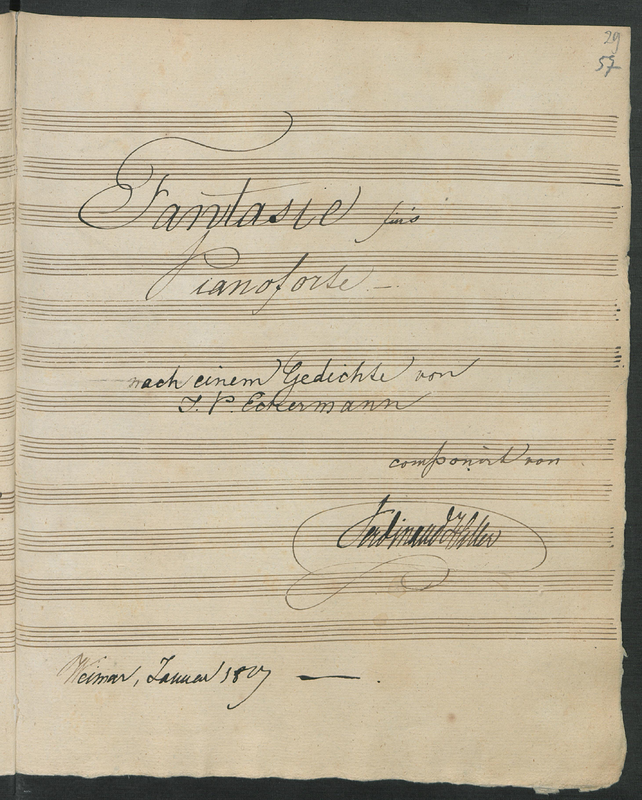 29
57
Fantasie fürs
Pianoforte –
nach einem Gedichte von
J. P. Eckermann
componirt von
Ferdinand Hiller
Weimar, Januar 1827 —.